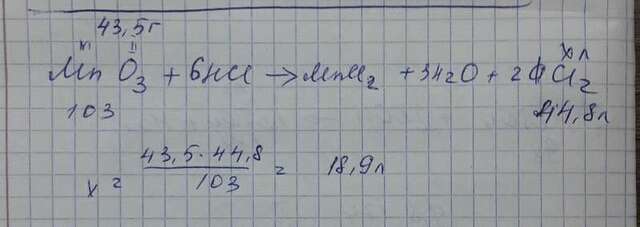 43,5г
VI II x л
MnO₃ + 6HCl → MnCl₂ + 3H₂O + 2Cl₂
103 44,8л
x = 43,5·44,8 / 103 = 18,9л